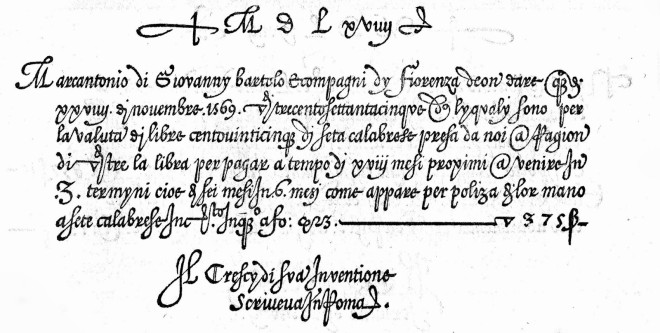 M D L xviiij
Marcantonio di Giovanny bartolo & compagni dy Fiorenza deon dare @
xxviiij. di novembre. 1569. trecentosettantacinque lyqualy sono per
la valuta di libre centovinticinq3 dj seta calabrese presa da noi @ Ragion
di tre la libra per pagar a tempo dj xviij mesi proximi @ venire In
.3. termyni cioe di sei mesi In .6. mesj come appare per poliza di lor mano
a sete calabrese In a fo: 123. ▽ 375 ß —
Il Crescy di sua Inventione
Scriveva In Roma.